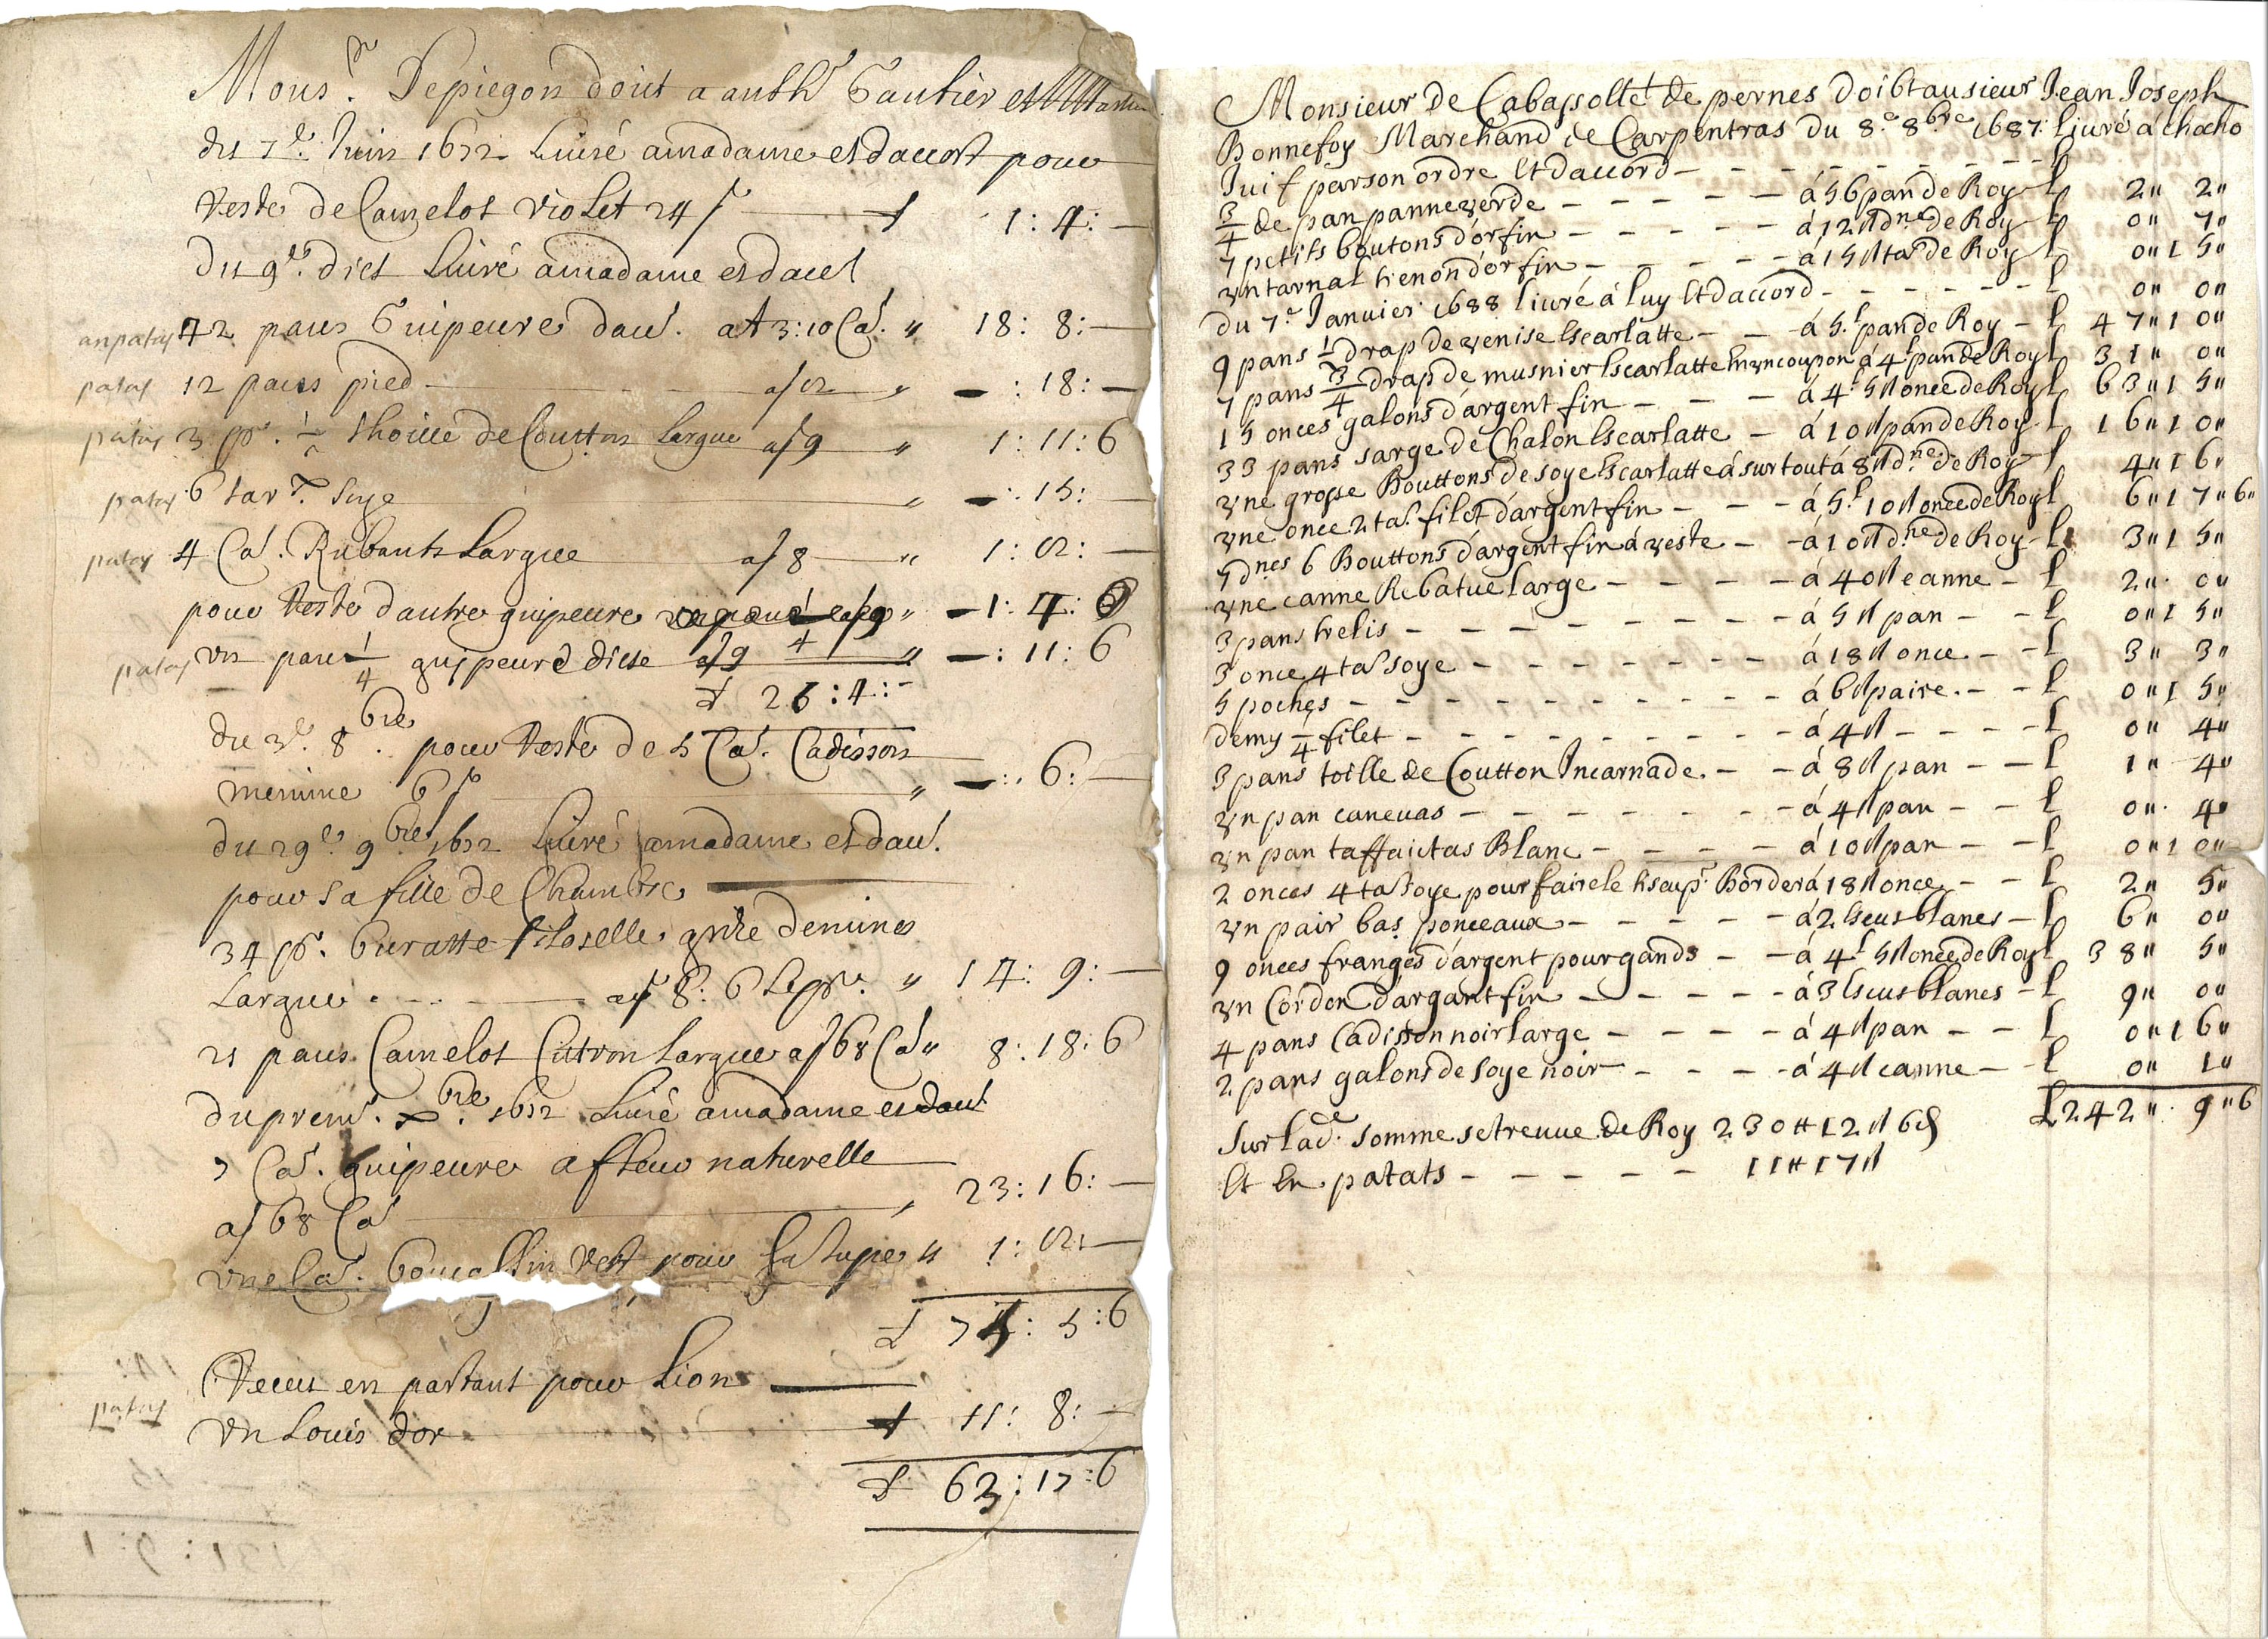 Mons.r Depiegon doit a anth.e Gautier et
du 7.e Juin 1672 Livré amadame et daccort pour
Veste de Camelot violet 24 s 1 : 4 : —
Du 9.e dict Livré amadame et dacct
anpatas 42 pans Guipeure daut. at 3:10 Ca. " 18 : 8 : —
patas 12 pans pied a s 12 " — : 18 : —
patas 3 p. 1/2 thoille de Coutton Largue a s 9 " 1 : 11 : 6
patas 6 tar s. Soye " — : 15 : —
patas 4 Ca. Rubants Largue a s 8 " 1 : 12 : —
pour Veste dautre guipeure " — 1 : 4 : 0
patas Un pan 1/4 guipeure dicte a s 9 " — : 11 : 6
26 : 4 : -
du 3.e 8.bre pour Veste de 5 Ca. Cadisson
menime 6 s " — : 6 : —
du 29.e 9.bre 1672 Livré amadame et dact.
pour sa fille de Chambre
34 p. Buratte filoselle
Largue a s 8 : 6 Le p. " 14 : 9 : —
21 pans Camelot Cittron Largue a s 68 Ca " 8 : 18 : 6
du prem. x.bre 1672 Livré amadame et dact
7 Ca. guipeure a fleur naturelle
a s 68 Ca " 23 : 16 : —
une Ca. vert pour sa Jupe " 1 : 12 : —
75 : 5 : 6
Receu en partant pour Lion
patas Un Louis dor 11 : 8 : —
63 : 17 : 6
Monsieur de Cabassolle de pernes doibt au sieur Jean Joseph
Bonnefoy Marchand de Carpentras du 8.e 8.bre 1687 livré à chocho
Juif par son ordre Et daccord - - - - - - - - - £
3/4 de pan panne verde - - - - - à 56 pan de Roy £ 2 " 2 "
7 petits boutons d'or fin - - - - - à 12 s d.ne de Roy £ 0 " 7 "
vn tarnal trenon d'or fin - - - - - à 15 s ta.l de Roy £ 0 " 15 "
du 7.e Januier 1688 livré à luy Et daccord - - - - - - £ 0 " 0 "
9 pans 1/2 drap de venise Escarlatte - - - à 5.£ pan de Roy - £ 47 " 10 "
7 pans 3/4 drap de musnier Escarlatte En vn coupon à 4£ pan de Roy £ 31 " 0 "
15 onces galons d'argent fin - - - à 4£ 5 s once de Roy £ 63 " 15 "
33 pans sarge de Chalon Escarlatte - à 10 s pan de Roy £ 16 " 10 "
vne grosse Bouttons de soye Escarlatte à surtout à 8 s d.ne de Roy £ 4 " 16 "
vne once 2 ta.l filet d'argent fin - - - à 5£ 10 s once de Roy £ 6 " 17 " 6 "
7 d.nes 6 Bouttons d'argent fin à veste - - à 10 s d.ne de Roy £ 3 " 15 "
vne canne Rebatue large - - - - à 40 s canne - £ 2 " 0 "
3 pans trelis - - - - - - - - à 5 s pan - - £ 0 " 15 "
3 once 4 ta.l soye - - - - - - - à 18 s once - - £ 3 " 3 "
5 poches - - - - - - - - - à 6 s paire - - £ 0 " 15 "
demy 1/4 filet - - - - - - - - - à 4 s - - - - £ 0 " 4 "
3 pans toille de Coutton Incarnade - - à 8 s pan - - £ 1 " 4 "
vn pan caneuas - - - - - - - à 4 s pan - - £ 0 " 4 "
vn pan taffaictas Blanc - - - - à 10 s pan - - £ 0 " 10 "
2 onces 4 ta.l soye pour faire le Border à 18 s once - - £ 2 " 5 "
vn pair bas ponceaux - - - - - à 2 Escus blancs - £ 6 " 0 "
9 onces franges d'argent pour gands - - à 4£ 5 s once de Roy £ 38 " 5 "
vn Cordon d'argant fin - - - - - à 3 Escus blancs - £ 9 " 0 "
4 pans Cadisson noir large - - - - à 4 s pan - - £ 0 " 16 "
2 pans galons de soye noir - - - - à 4 s canne - £ 0 " 1 "
£ 242 " 9 " 6
Sur lad.e somme se treuue de Roy 230 ₶ 12 s 6 d
Et En patats - - - - - - 11 ₶ 17 s